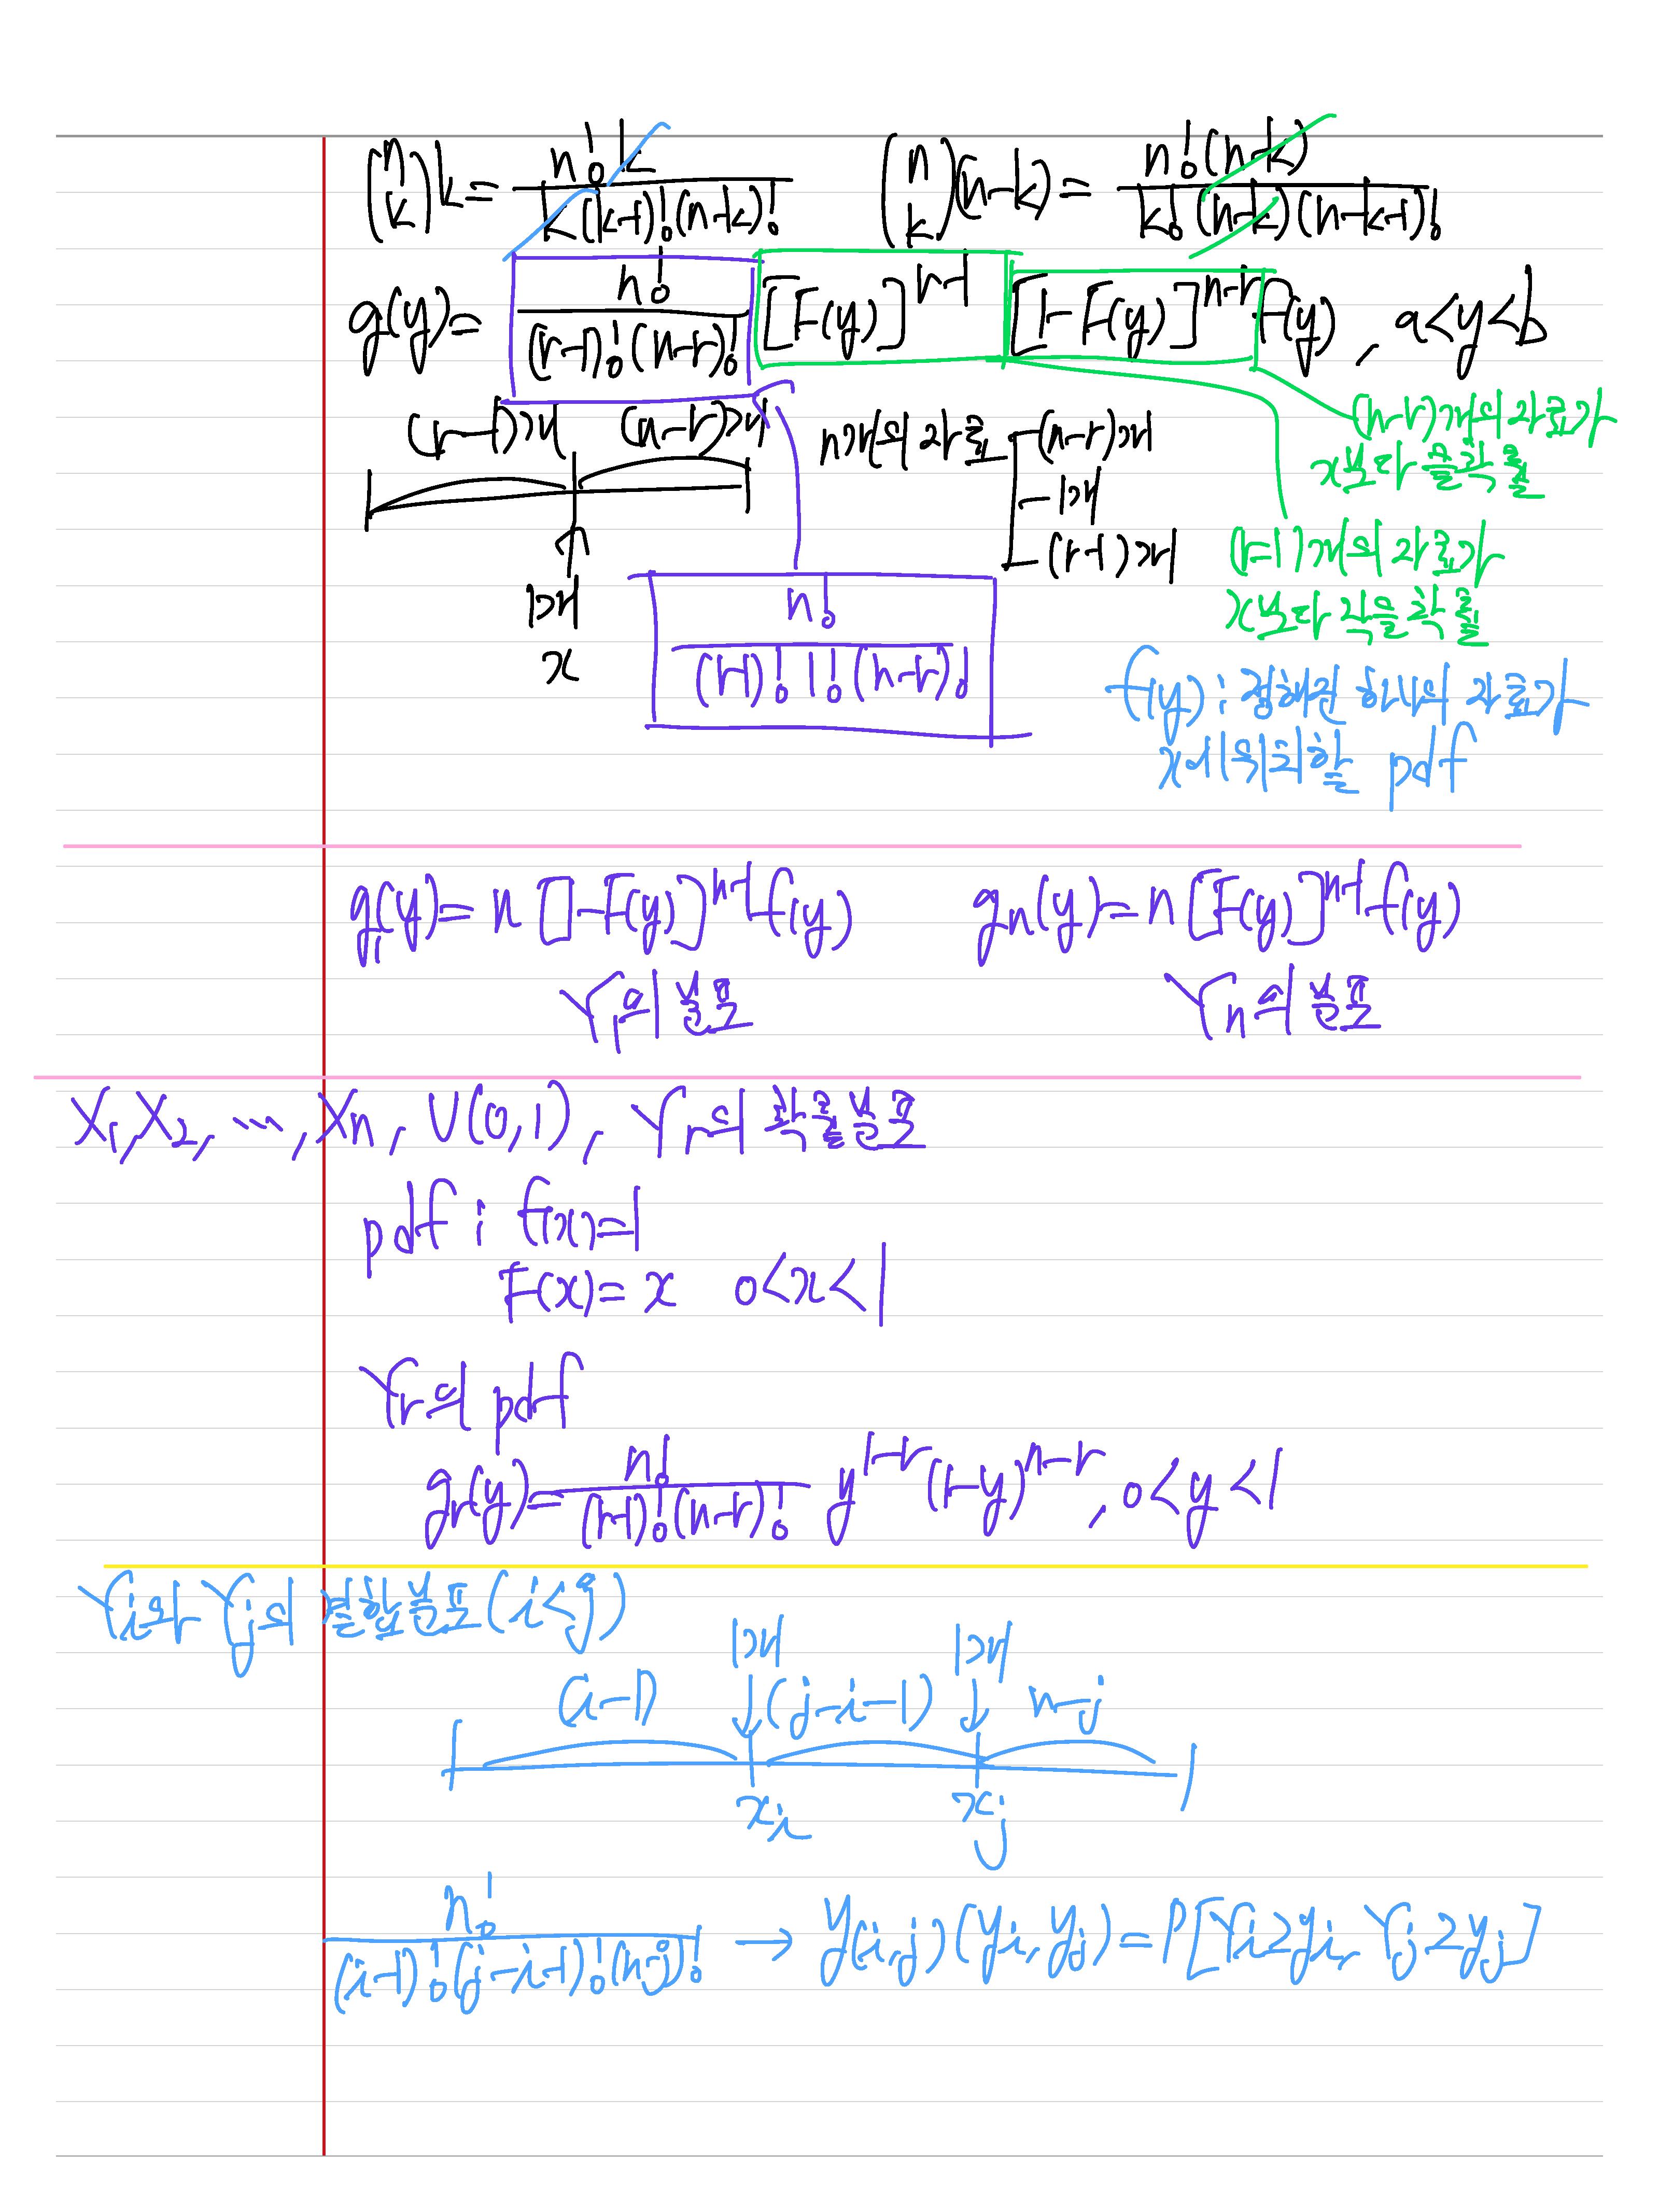 (n k)k = n!k / k(k-1)!(n-k)!    (n k)(n-k) = n!(n-k) / k!(n-k)(n-k-1)!
g(y) = n! / (r-1)!(n-r)! [F(y)]^{r-1} [1-F(y)]^{n-r} f(y), a<y<b
(r-1)개 (n-r)개
1개
x
n개의 자료 (n-r)개
1개
(r-1)개
(n-r)개의 자료가
x보다 클 확률
(r-1)개의 자료가
x보다 작을 확률
n! / (r-1)! 1! (n-r)!
f(y) : 정해진 하나의 자료가
x에 위치할 pdf
g₁(y) = n [1-F(y)]^{n-1} f(y)    gn(y) = n [F(y)]^{n-1} f(y)
Y₁의 분포    Yn의 분포
X₁, X₂, ⋯, Xn, U(0,1), Yr의 확률분포
pdf : f(x)=1
F(x) = x  0<x<1
Yr의 pdf
gr(y) = n! / (r-1)!(n-r)! y^{1-r} (1-y)^{n-r}, 0<y<1
Yi와 Yj의 결합분포 (i<j)
1개 1개
(i-1) (j-i-1) n-j
xi xj
n! / (i-1)!(j-i-1)!(n-j)! → g(i,j)(yi, yj) = P[Yi≥yi, Yj≥yj]